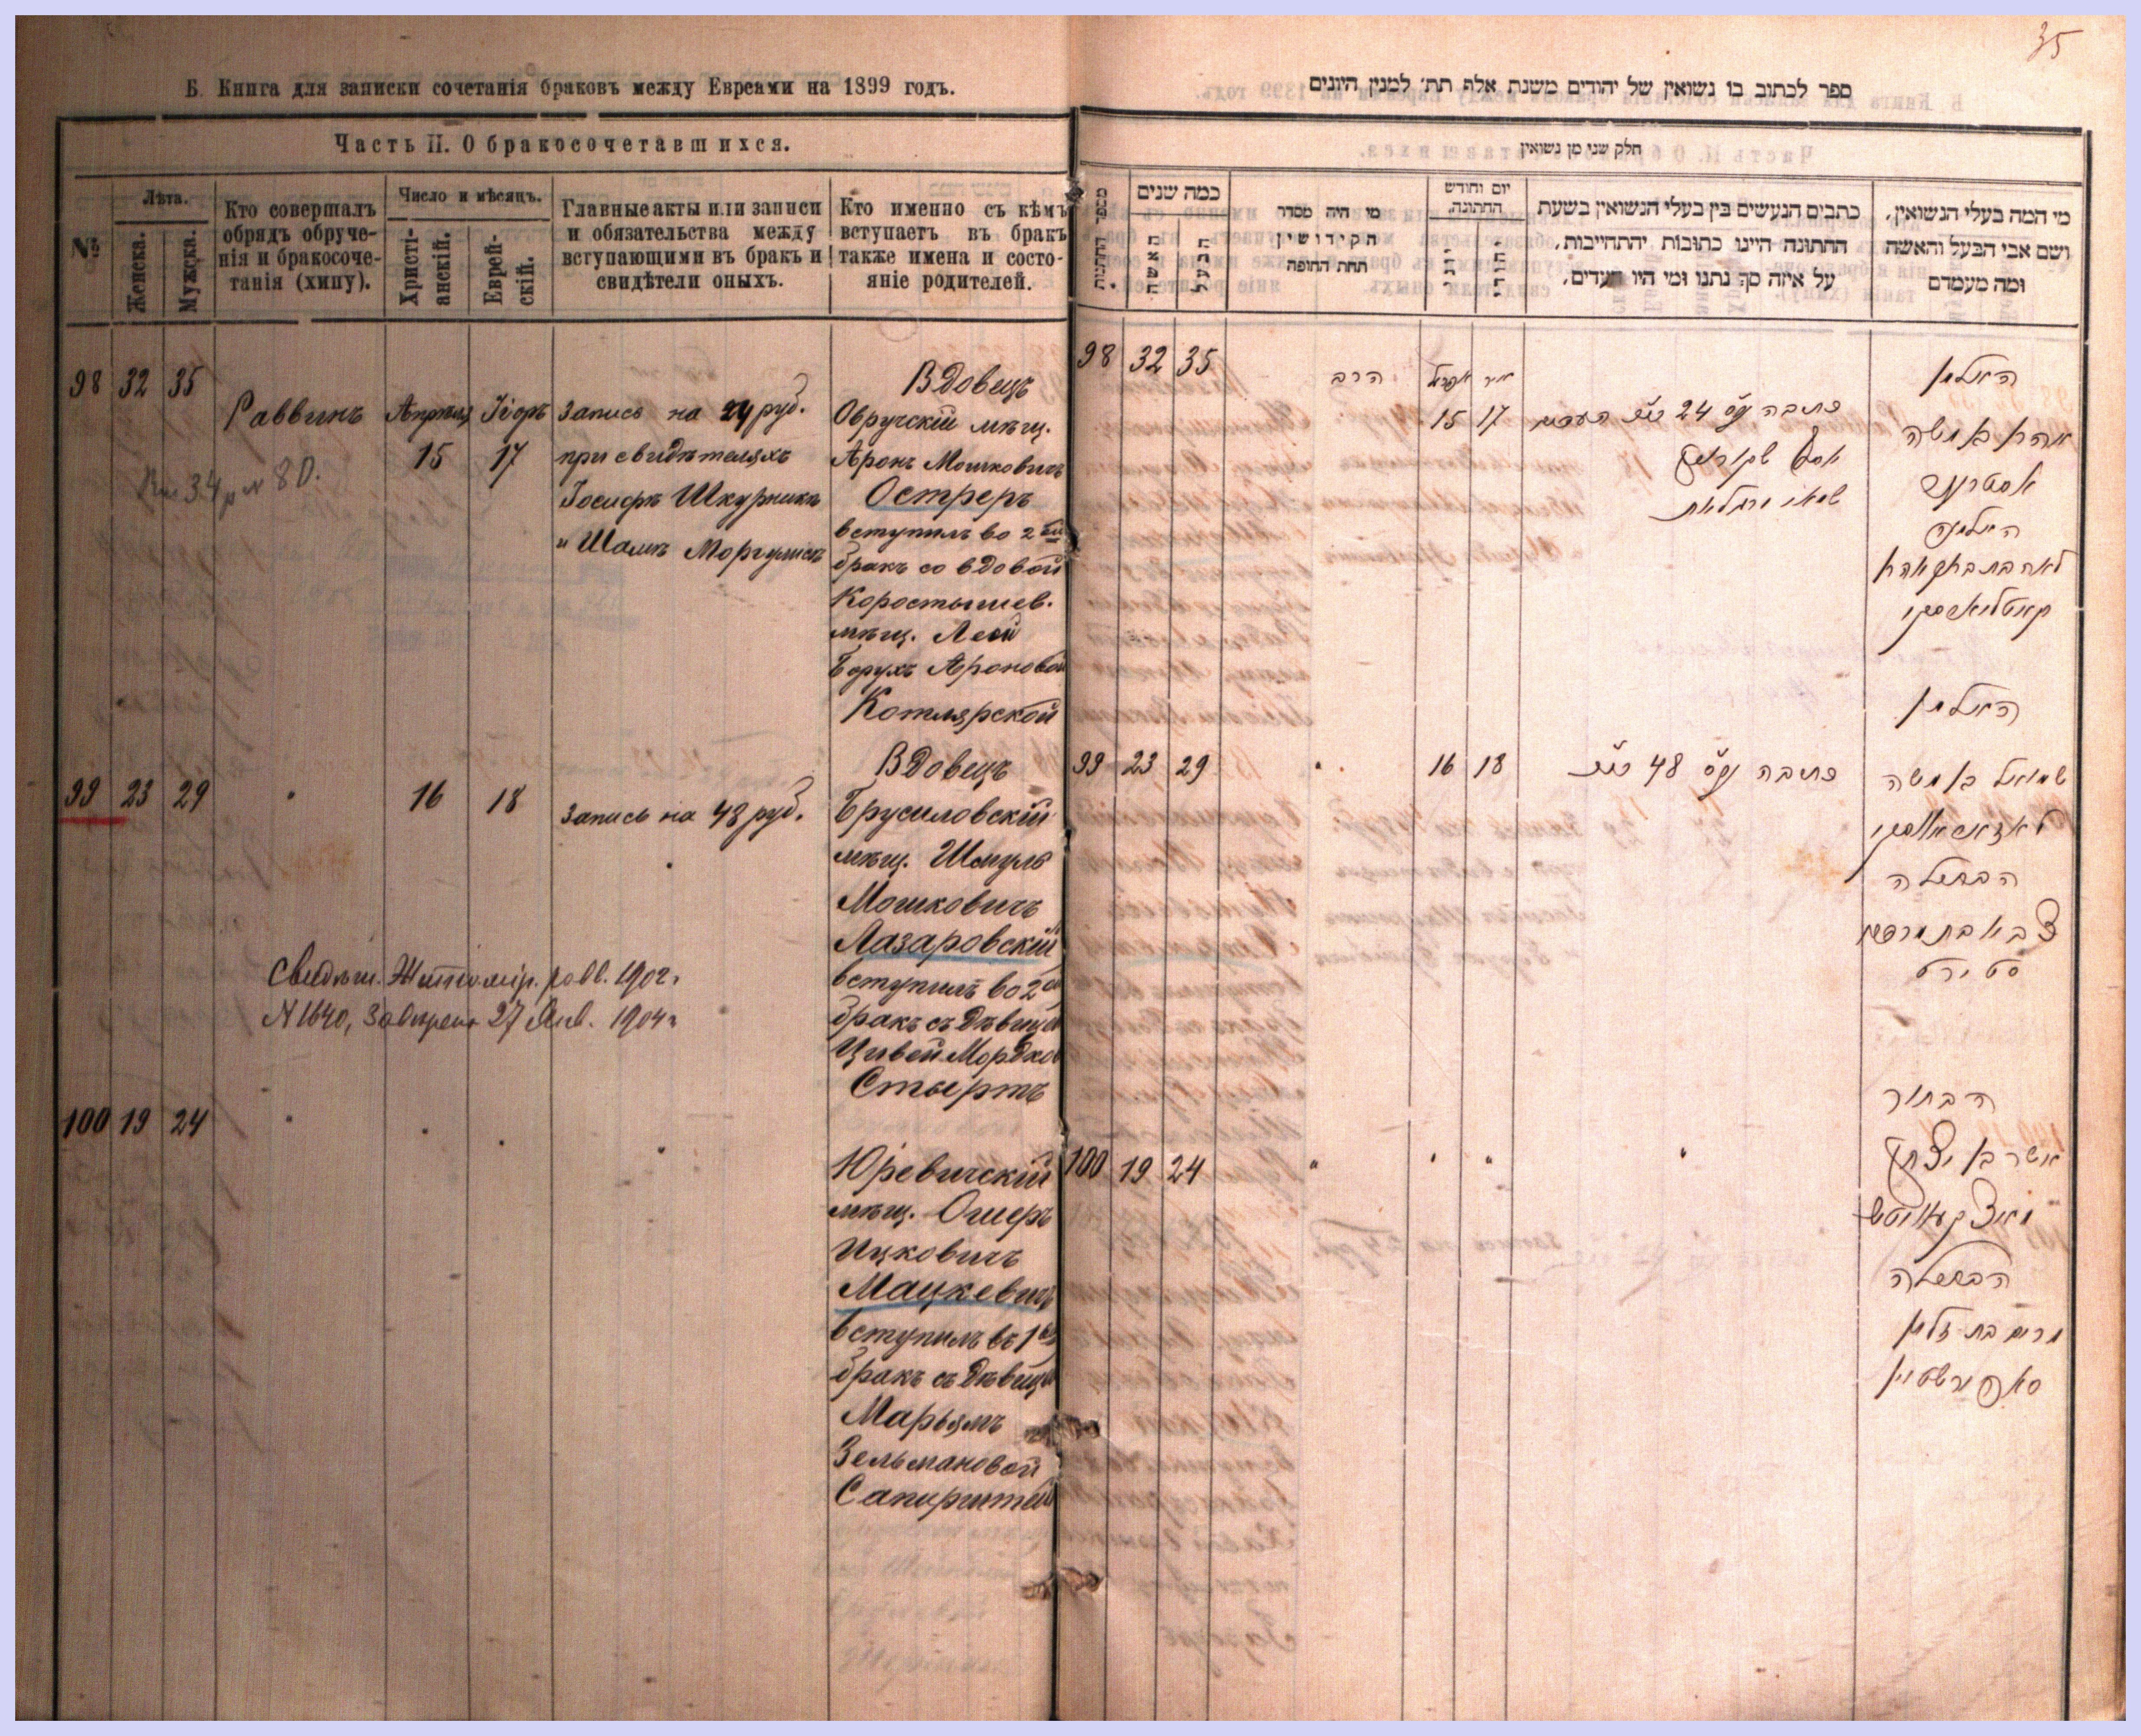 35
Б. Книга для записки сочетанія браковъ между Евреями на 1899 годъ.
Часть II. О бракосочетавшихся.
№
Лѣта.
Женска.
Мужска.
Кто совершалъ
обрядъ обруче-
нія и бракосоче-
танія (хипу).
Число и мѣсяцъ.
Христі-
анскій.
Еврей-
скій.
Главные акты или записи
и обязательства между
вступающими въ бракъ и
свидѣтели оныхъ.
Кто именно съ кѣмъ
вступаетъ въ бракъ
также имена и состо-
яніе родителей.
98 32 35
Раввинъ
Апрѣля
15
17
Запись на 24 руб.
при свидѣтеляхъ
Іосифъ Шкурникъ
и Шамъ Моргулисъ
Вдовецъ
Овручскій мѣщ.
Аронъ Мошковичъ
Остреръ
вступилъ во 2ой
бракъ со вдовой
Коростышев.
мѣщ. Леей
Борухъ Ароновой
Котлярской
99 23 29
16
18
Запись на 48 руб.
Вдовецъ
Брусиловскій
мѣщ. Шмуль
Мошковичъ
Лазаровскій
вступилъ во 2ой
бракъ съ дѣвицей
Цивей Мордков
Стыертъ
Свидѣт. Житомір. равв. 1902 г.
N 1640, Завѣрено 27 Янв. 1904 г
100 19 24
Юревичскій
мѣщ. Ошеръ
Ицковичъ
Мацкевичъ
вступилъ въ 1ый
бракъ съ дѣвицей
Марьямъ
Зельмановой
Сапирштейн
ספר לכתוב בו נשואין של יהודים משנת אלף תת׳ למנין היונים
חלק שני מן נשואין
מספר החתונות
כמה שנים
האשה
הבעל
מי היה מסדר
הקידושין
תחת החופה
יום וחודש
החתונה.
יהודי
כתבים הנעשים בין בעלי הנשואין בשעת
החתונה היינו כתובות יהתחייבות,
על איזה סך נתנו ומי היו העדים,
מי המה בעלי הנשואין,
ושם אבי הבעל והאשה
ומה מעמדם
98 32 35
הרב
אפריל
15
אייר
17
כתובה על סך 24
האלמן
אהרן בן משה
אסטרער
האלמנה
לאה בת ברוך אהרן
קאטליארסקי
99 23 29
16 18
כתובה על סך 48
האלמן
שמואל בן משה
לאזאראווסקי
הבתולה
צביא בת מרדכי
סטירט
100 19 24
הבחור
אשר בן יצחק
מאצקעוויטש
הבתולה
מרים בת זלמן
סאפירשטיין